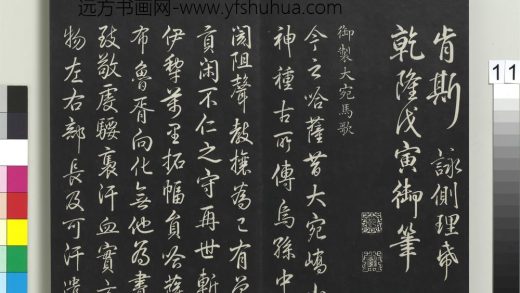 远方书画网-www.yfshuhua.com
肯斯 詠側理帋
乾隆戊寅御筆
御製大宛馬歌
今之哈薩昔大宛嶠
神種古所傳烏孫中
閡阻聲敖攘為己有
貢闲不仁之守再世斬
伊犁萬里拓幅員哈薩
布魯胥向化無他為書
致敬虔騕褭汗血實方
物左右部長及可汗遣
11